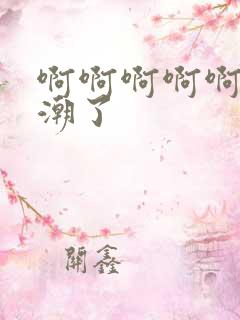 啊啊啊啊啊
潮了
開鑫